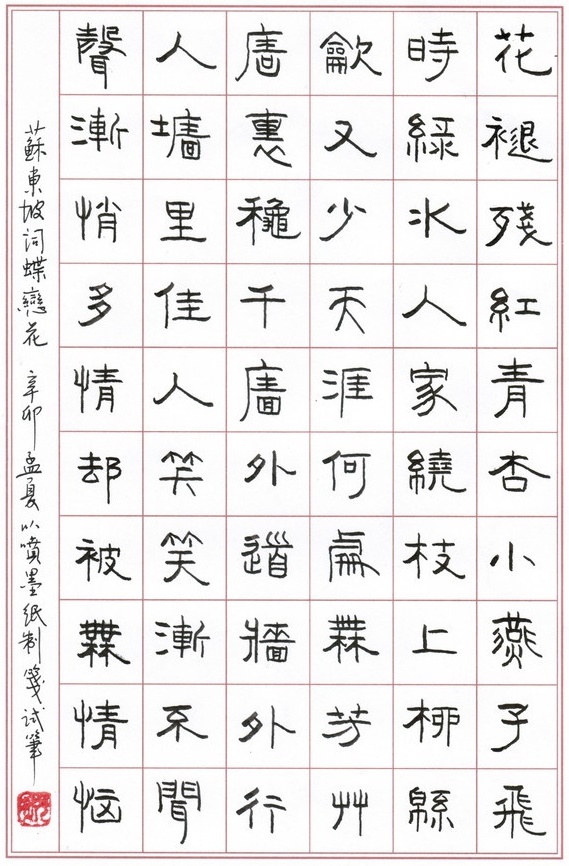 花褪殘紅青杏小燕子飛
時綠水人家繞枝上柳緜
龡又少天涯何處無芳艸
裏穐千廧外道牆外行
人墻里佳人笑笑漸不聞
聲漸悄多情却被無情恼
蘇東坡词蝶戀花 辛卯孟夏以噴墨紙制箋试筆